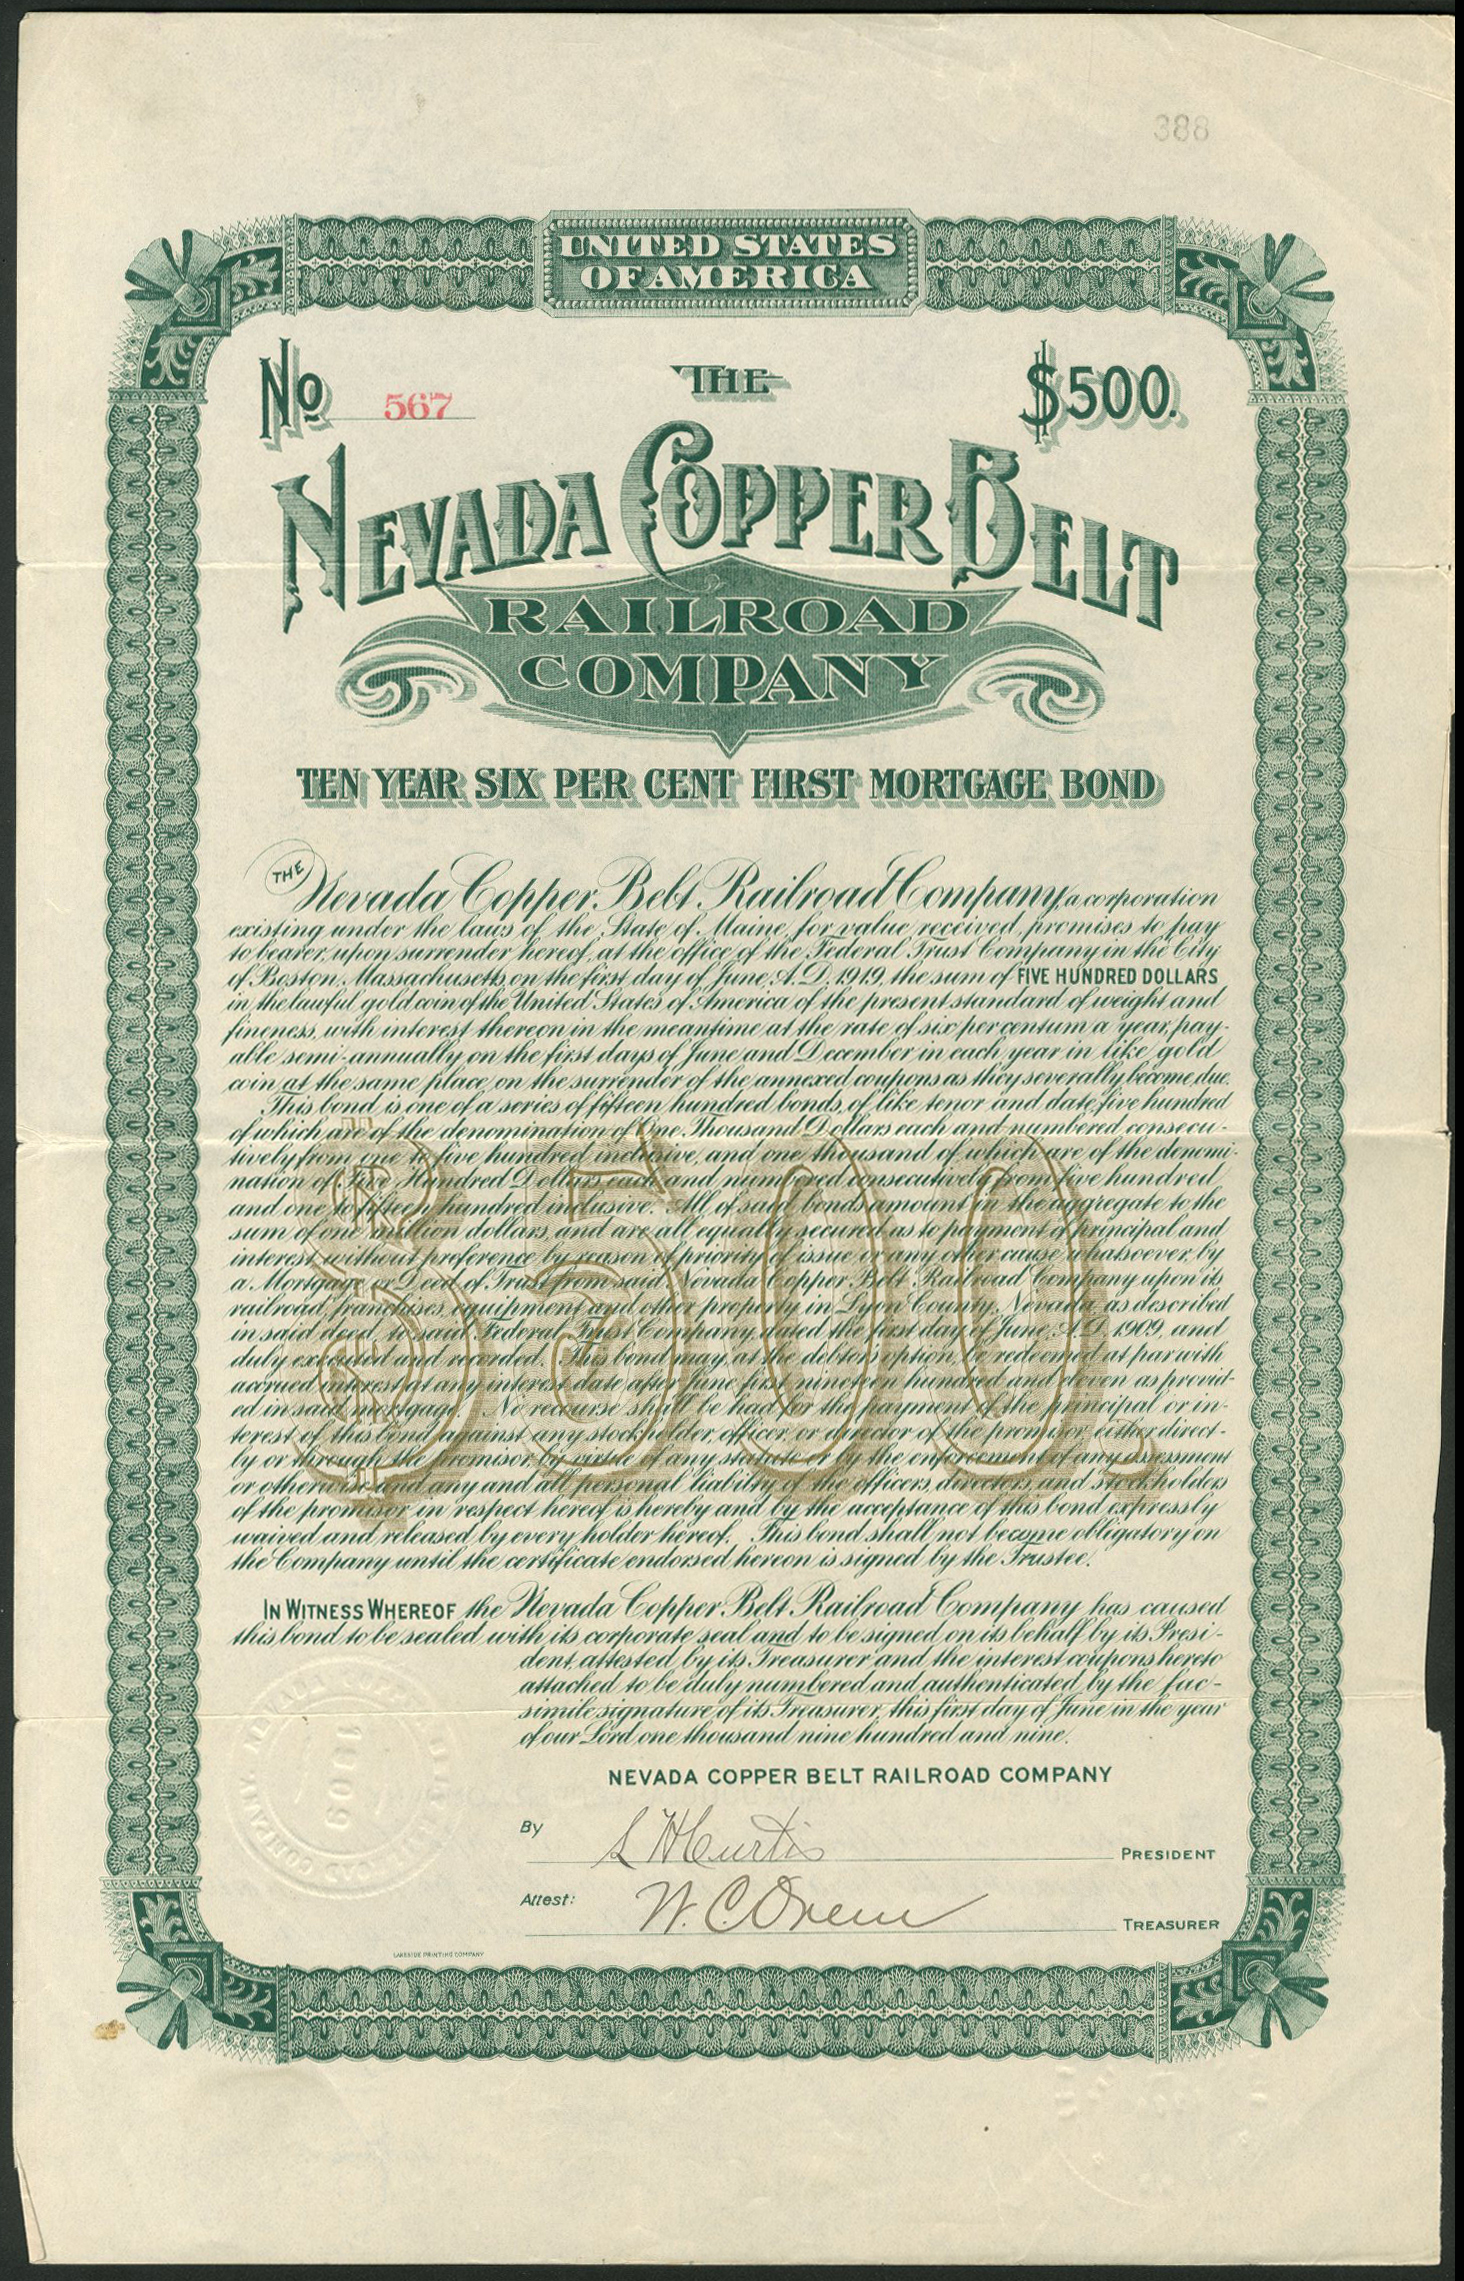 388
UNITED STATES
OF AMERICA
No 567
THE
$500.
NEVADA COPPER BELT
RAILROAD
COMPANY
TEN YEAR SIX PER CENT FIRST MORTGAGE BOND
THE Nevada Copper Belt Railroad Company, a corporation
existing under the laws of the State of Maine, for value received, promises to pay
to bearer, upon surrender hereof, at the office of the Federal Trust Company in the City
of Boston, Massachusetts, on the first day of June, A.D. 1919, the sum of FIVE HUNDRED DOLLARS
in the lawful gold coin of the United States of America of the present standard of weight and
fineness, with interest thereon in the meantime at the rate of six per centum a year, pay-
able semi-annually on the first days of June and December in each year in like gold
coin at the same place, on the surrender of the annexed coupons as they severally become due.
This bond is one of a series of fifteen hundred bonds, of like tenor and date, five hundred
of which are of the denomination of One Thousand Dollars each and numbered consecu-
tively from one to five hundred inclusive, and one thousand of which are of the denomi-
nation of Five Hundred Dollars each and numbered consecutively from five hundred
and one to fifteen hundred inclusive. All of said bonds amount in the aggregate to the
sum of one million dollars, and are all equally secured as to payment of principal and
interest, without preference by reason of priority of issue or any other cause whatsoever, by
a Mortgage or Deed of Trust from said Nevada Copper Belt Railroad Company upon its
railroad, franchises, equipment and other property in Lyon County, Nevada, as described
in said deed, to said Federal Trust Company, dated the first day of June, A.D. 1909, and
duly executed and recorded. This bond may, at the debtor's option, be redeemed at par with
accrued interest at any interest date after June first nineteen hundred and eleven as provid-
ed in said mortgage. No recourse shall be had for the payment of the principal or in-
terest of this bond against any stockholder, officer, or director of the promisor, either direct-
ly or through the promisor, by virtue of any statute or by the enforcement of any assessment
or otherwise and any and all personal liability of the officers, directors, and stockholders
of the promisor in respect hereof is hereby and by the acceptance of this bond expressly
waived and released by every holder hereof. This bond shall not become obligatory on
the Company until the certificate endorsed hereon is signed by the Trustee.
$500.
IN WITNESS WHEREOF the Nevada Copper Belt Railroad Company has caused
this bond to be sealed with its corporate seal and to be signed on its behalf by its Presi-
dent, attested by its Treasurer and the interest coupons hereto
attached to be duly numbered and authenticated by the fac-
simile signature of its Treasurer, this first day of June in the year
of our Lord one thousand nine hundred and nine.
NEVADA COPPER BELT RAILROAD COMPANY
1909
NEVADA COPPER BELT RAILROAD COMPANY
By S H Curtis PRESIDENT
Attest: W. C. Orem TREASURER
LAKESIDE PRINTING COMPANY